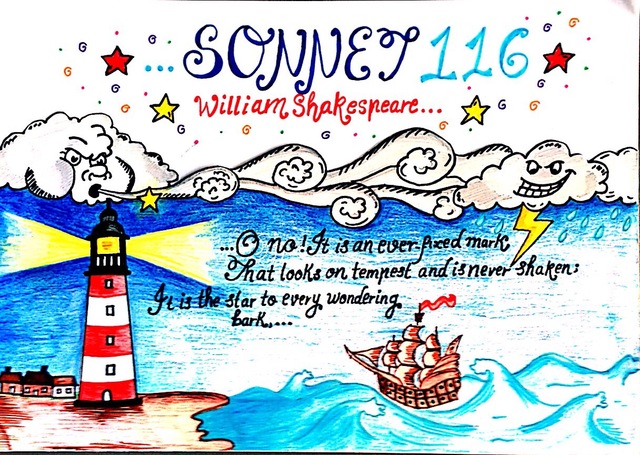 ...SONNET 116
William Shakespeare...
...O no! It is an ever-fixed mark,
That looks on tempest and is never shaken;
It is the star to every wondering
bark,...